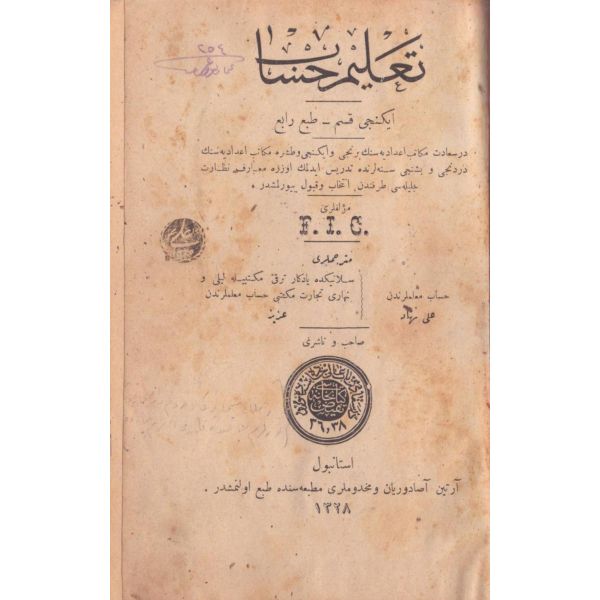 ٢٥٤
تعليم حساب
ايكنجى قسم – طبع رابع
درسعادت مكاتب اعداديه سنك برنجى و ايكنجى و طشره مكاتب اعداديه سنك
دردنجى و بشنجى سنه لرنده تدريس ايدلك اوزره معارف نظارت
جليله سى طرفندن انتخاب و قبول بيورلمشدر .
مؤلفلرى
F. I. C.
مترجملرى
حساب معلملرندن
على نهاد
سلانيكده يادكار ترقى مكتبيله ليلى و
نهارى تجارت مكتبى حساب معلملرندن
عزيز
صاحب و ناشرى
٣٦،٣٨
استانبول
آرتين آصادوريان و مخدوملرى مطبعه سنده طبع اولنمشدر .
١٣٢٨